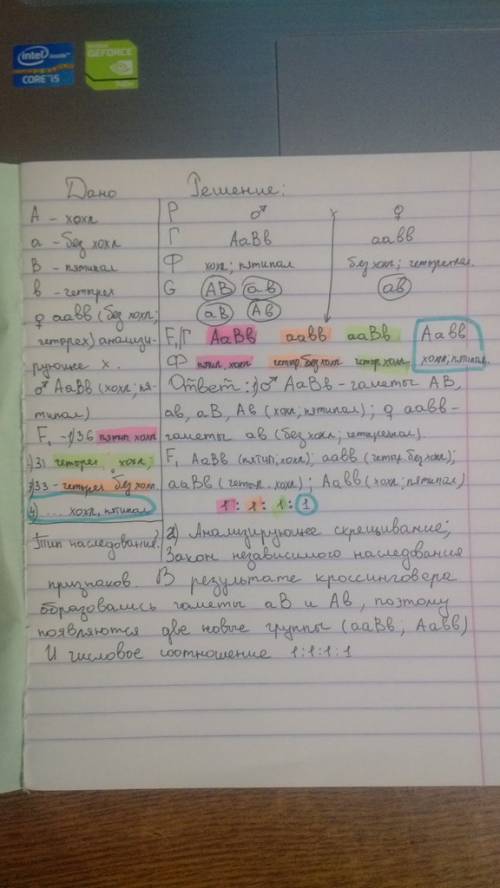 intel inside
CORE i5
NVIDIA
GEFORCE
Дано Решение:
А - хохл Р ♂ х ♀
а - без хохл Г АаВв аавв
В - пятипал Ф хохл; пятипал без хохл;
в - четырех G АВ ав ав
♀ аавв (без хохл; аВ Ав
четырех) анализи- F₁ Г АаВв аавв ааВв Аавв
рующее х. Ф пятип. хохл четыр. без хохл четыр. хохл хохл, пятипал.
♂ АаВв (хохл; пя- Ответ: 1) ♂ АаВв - гаметы АВ,
типал) ав, аВ, Ав (хохл, пятипал); ♀ аавв -
F₁ - 1) 36 пятип хохл гаметы ав (без хохл;
2) 31 четырех, хохл; F₁ АаВв (пятип, хохл); аавв (четыр. без хохл);
3) 33 - четырех без хохл ааВв (четып. хохл); Аавв (хохл; пятипал)
4) .... хохл, пятипал 1 : 1 : 1 : 1
Тип наследования? 2) Анализирующее скрещивание;
Закон независимого наследования
признаков. В результате кроссинговера
образовались гаметы аВ и Ав, поэтому
появляются две новые группы (ааВв; Аавв)
И числовое соотношение 1:1:1:1